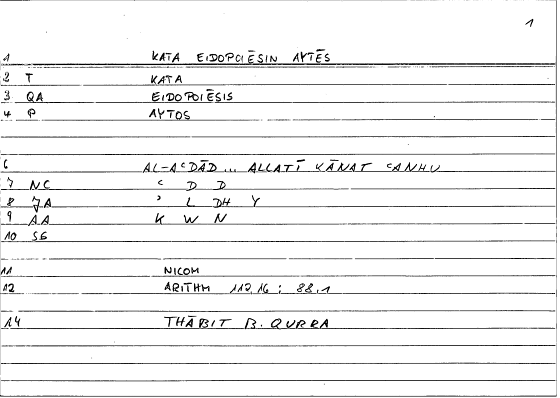 1
1 KATA EIDOPOIĒSIN AYTĒS
2 T KATA
3 QA EIDOPOIĒSIS
4 P AYTOS
6 AL-AʿDĀD ... ALLATĪ KĀNAT ʿANHU
7 NC ʿ D D
8 JA ʾ L DH Y
9 AA K W N
10 SG
11 NICOM
12 ARITHM 112,16 : 88.1
14 THĀBIT B. QURRA